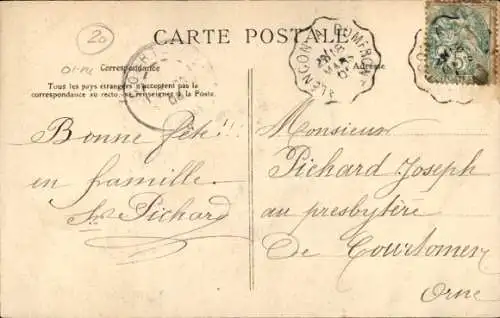 20
Orne
CARTE POSTALE
Correspondance
Adresse
Tous les pays étrangers n'acceptent pas la
correspondance au recto. se renseigner à la Poste.
ALENÇON A DOMFRONT
18
MARS
Bonne fête!!
en famille.
Pichard
Monsieur
Pichard Joseph
au presbytère
De Courtomer
Orne
5